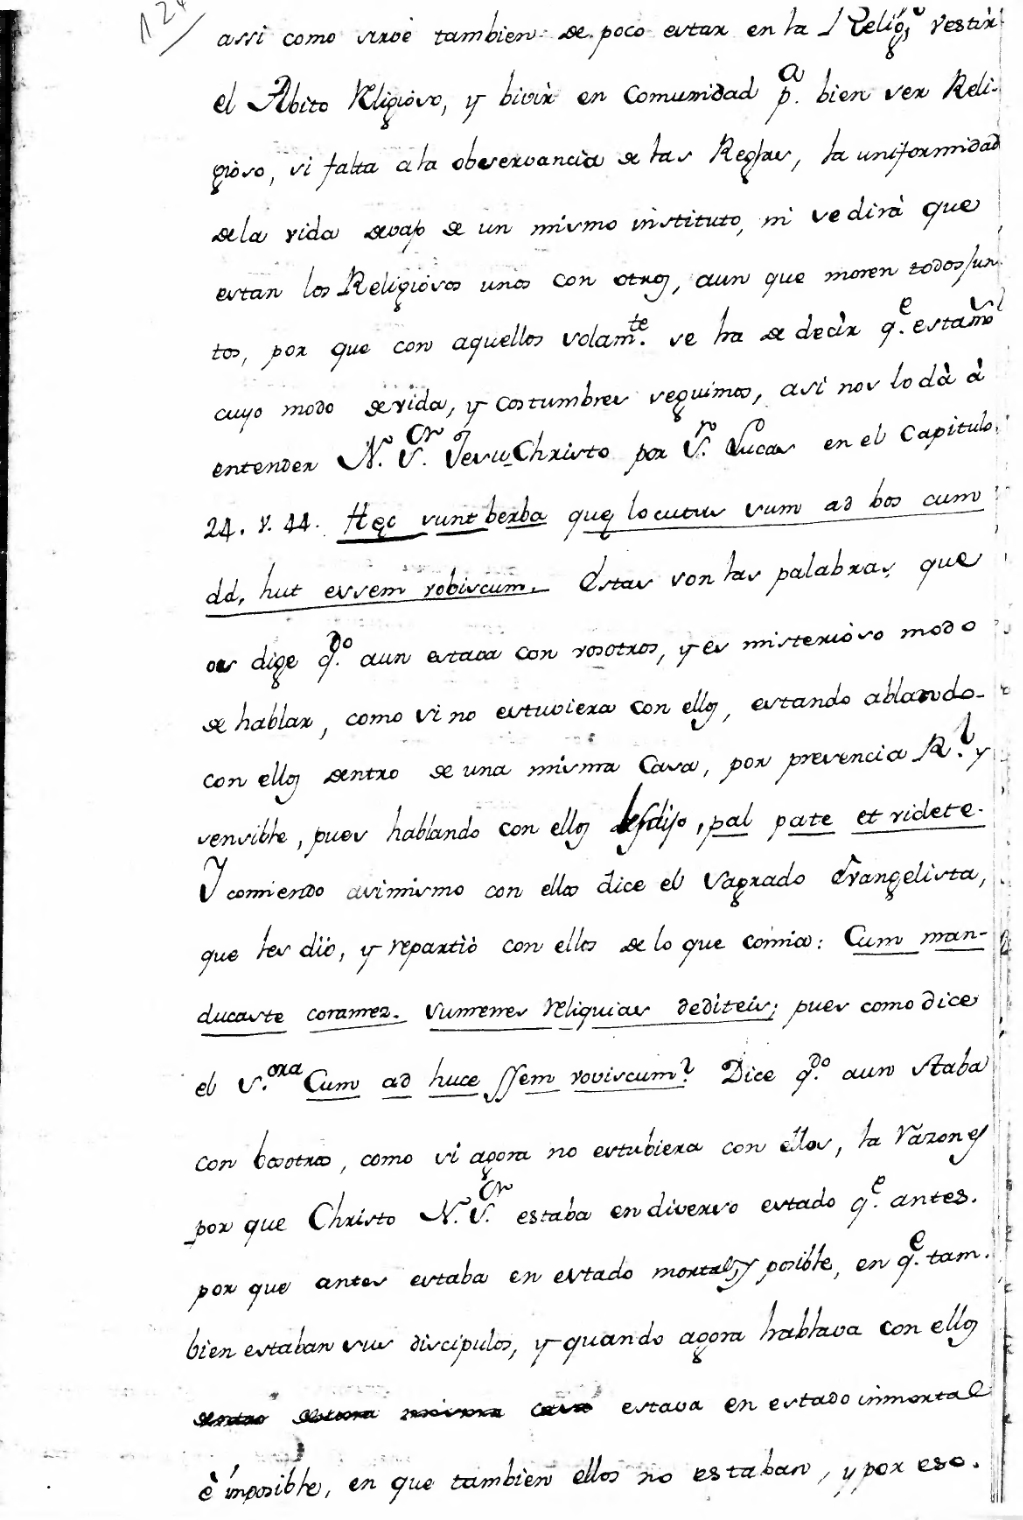 124
assi como sirve tambien de poco estar en la Relig.ⁿ vestir
el Abito Religioso, y bivir en Comunidad p.ᵃ bien ser Reli-
gioso, si falta a la observancia de las Reglas, la uniformidad
de la vida devajo de un mismo instituto, ni se dirà que
estan los Religiosos unos con otros, aun que moren todos jun-
tos, por que con aquellos solam.ᵗᵉ se ha de decir q.ᵉ estamos
cuyo modo de vida, y costumbres seguimos, asi nos lo dà à
entender N. S.ᵒʳ Jesu-Christo por S.ⁿ Lucas en el Capitulo
24. v. 44. Hęc sunt berba quę locutus sum ad bos cum
dd, hut essem vobiscum. Estas son las palabras, que
os dige q.ᵈᵒ aun estava con vosotros, y es misterioso modo
de hablar, como si no estuviera con ellos, estando ablando
con ellos dentro de una misma Casa, por presencia R.ˡ y
sensible, pues hablando con ellos les dijo, pal pate et videte.
Y comiendo asimismo con ellos dice el Sagrado Evangelista,
que les diò, y repartiò con ellos de lo que comia: Cum man-
ducaste coramez. Sumenes reliquias dediteis; pues como dice
el S.ᵒʳᵃ Cum ad huce ssem voviscum? Dice q.ᵈᵒ aun staba
con bosotros, como si agora no estubiera con éllos, la razon es
por que Christo N. S.ᵒʳ estaba en diverso estado q.ᵉ antes.
por que antes estaba en estado mortal, y posible, en q.ᵉ tam-
bien estaban sus discipulos, y quando agora hablava con ellos
dentro de una misma casa estava en estado inmortal
è imposible, en que tambien ellos no estaban, y por eso.